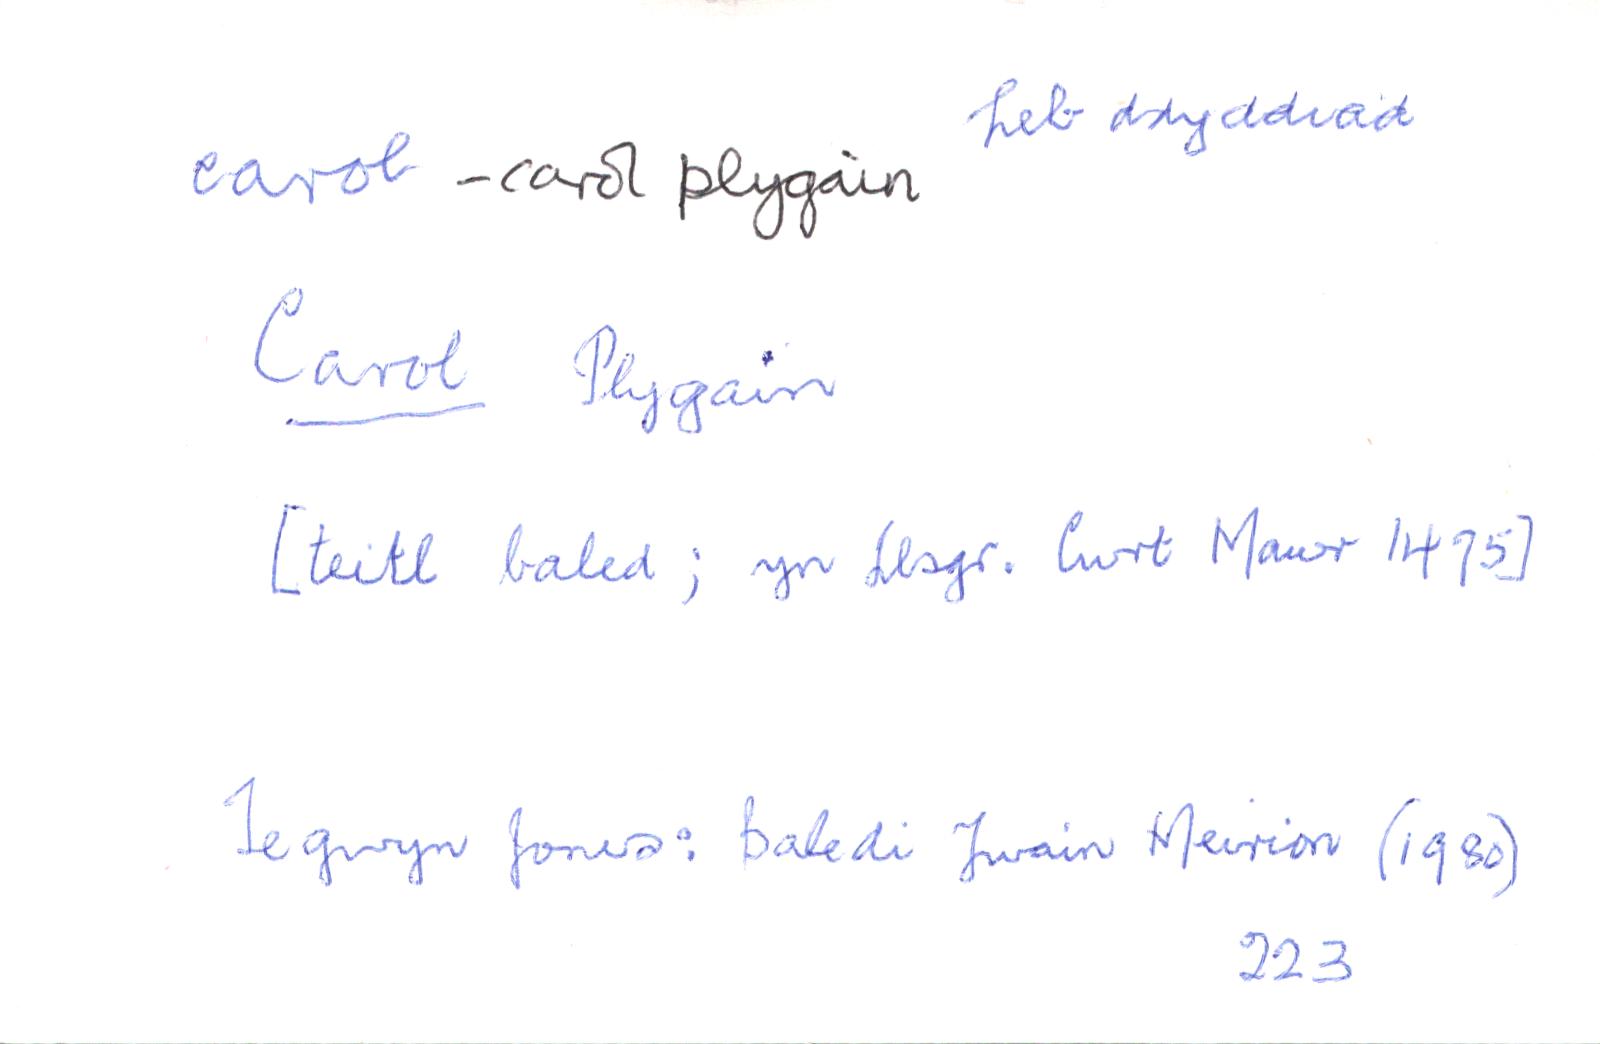 heb ddyddiad
carol - carol plygain
Carol Plygain
[teitl baled; yn llsgr. Cwrt Mawr 1495]
Tegwyn Jones: Baledi Ywain Meirion (1980)
223